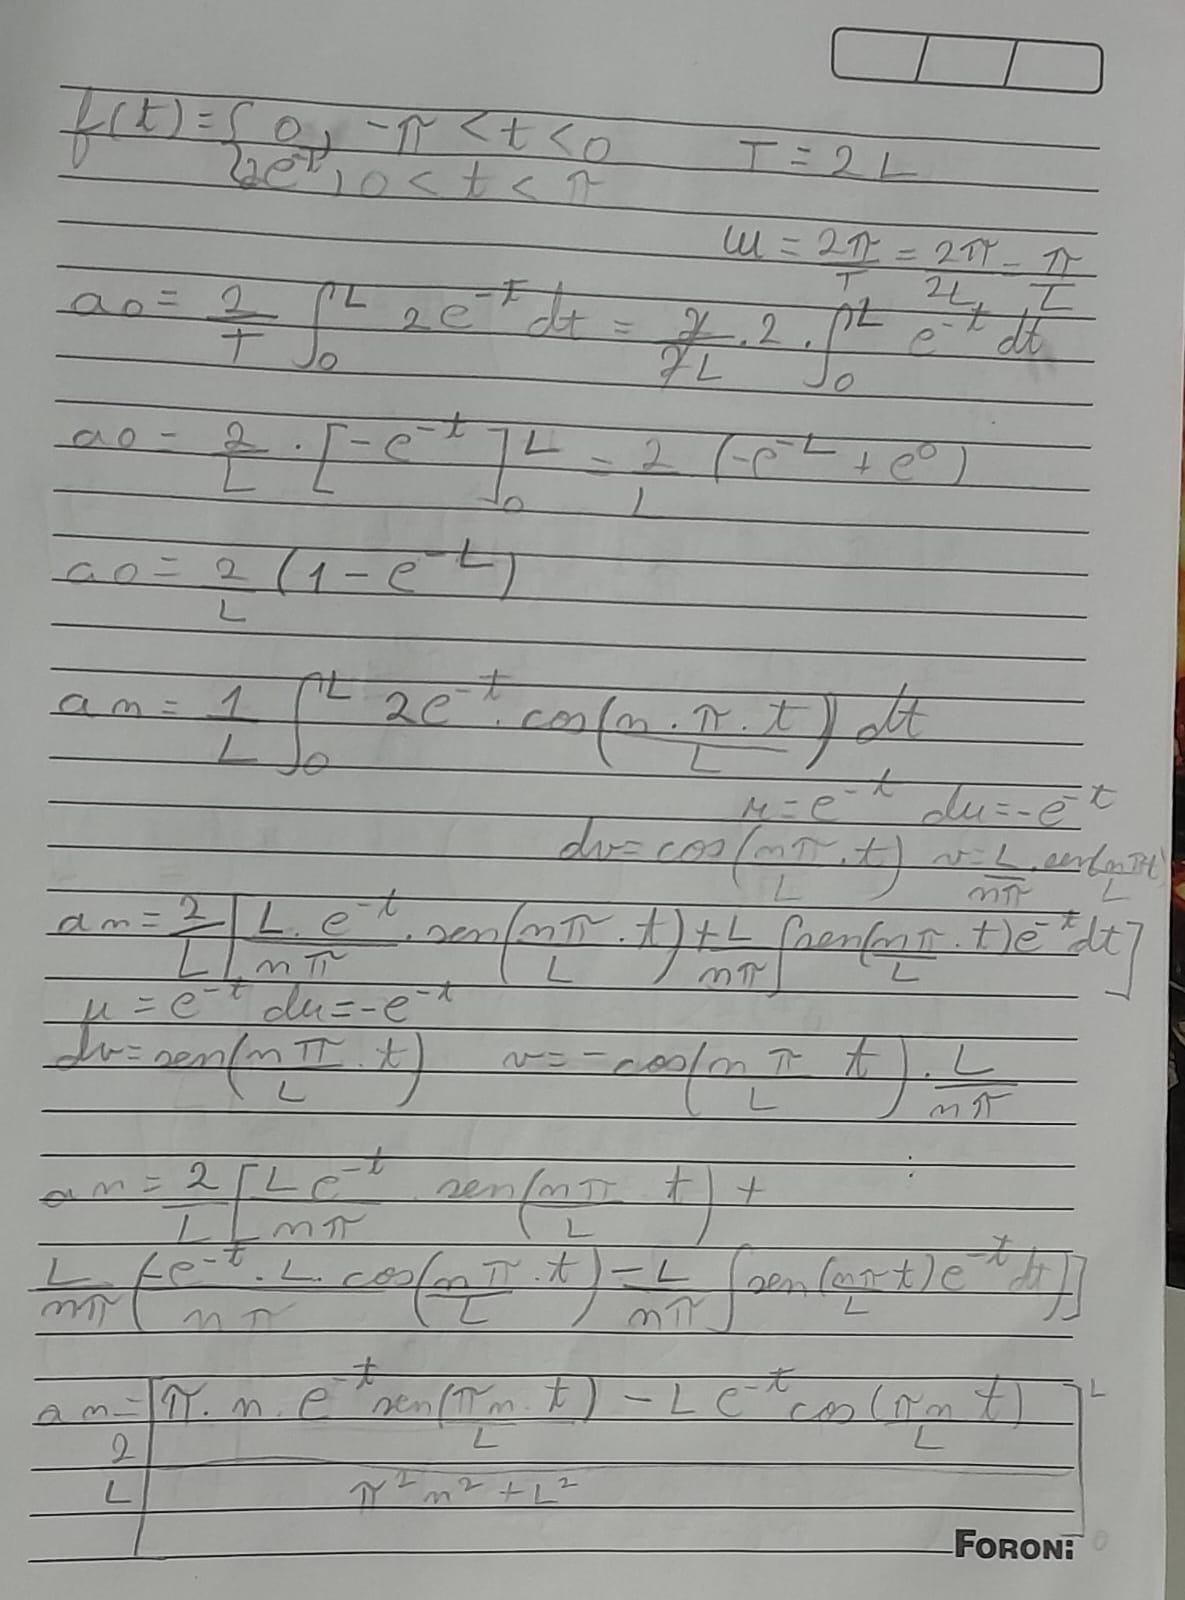 f(t) = { 0, -π < t < 0    T = 2L
{ 2e^-t, 0 < t < π
ω = 2π/T = 2π/2L = π/L
a0 = 2/T ∫_0^L 2e^-t dt = 2/2L . 2 . ∫_0^L e^-t dt
a0 = 2/L . [-e^-t]_0^L = 2/L (-e^-L + e^0)
a0 = 2/L (1 - e^-L)
an = 1/L ∫_0^L 2e^-t . cos(n . π . t / L) dt
u = e^-t  du = -e^-t
dv = cos(nπ/L . t)  v = L/nπ . sen(nπt/L)
an = 2/L [L . e^-t/nπ . sen(nπ/L . t) + L/nπ ∫sen(nπ/L . t) e^-t dt]
u = e^-t  du = -e^-t
dv = sen(nπ/L . t)  v = -cos(nπ/L t) . L/nπ
an = 2/L [L e^-t/nπ . sen(nπ/L t) +
L/nπ (-e^-t . L . /nπ cos(nπ/L . t) - L/nπ ∫sen(nπt/L) e^-t dt)]
an = 2/L [(π . n . e^-t sen(πn/L . t) - L e^-t cos(πn/L t)) / (π²n² + L²)]_0^L
FORONI